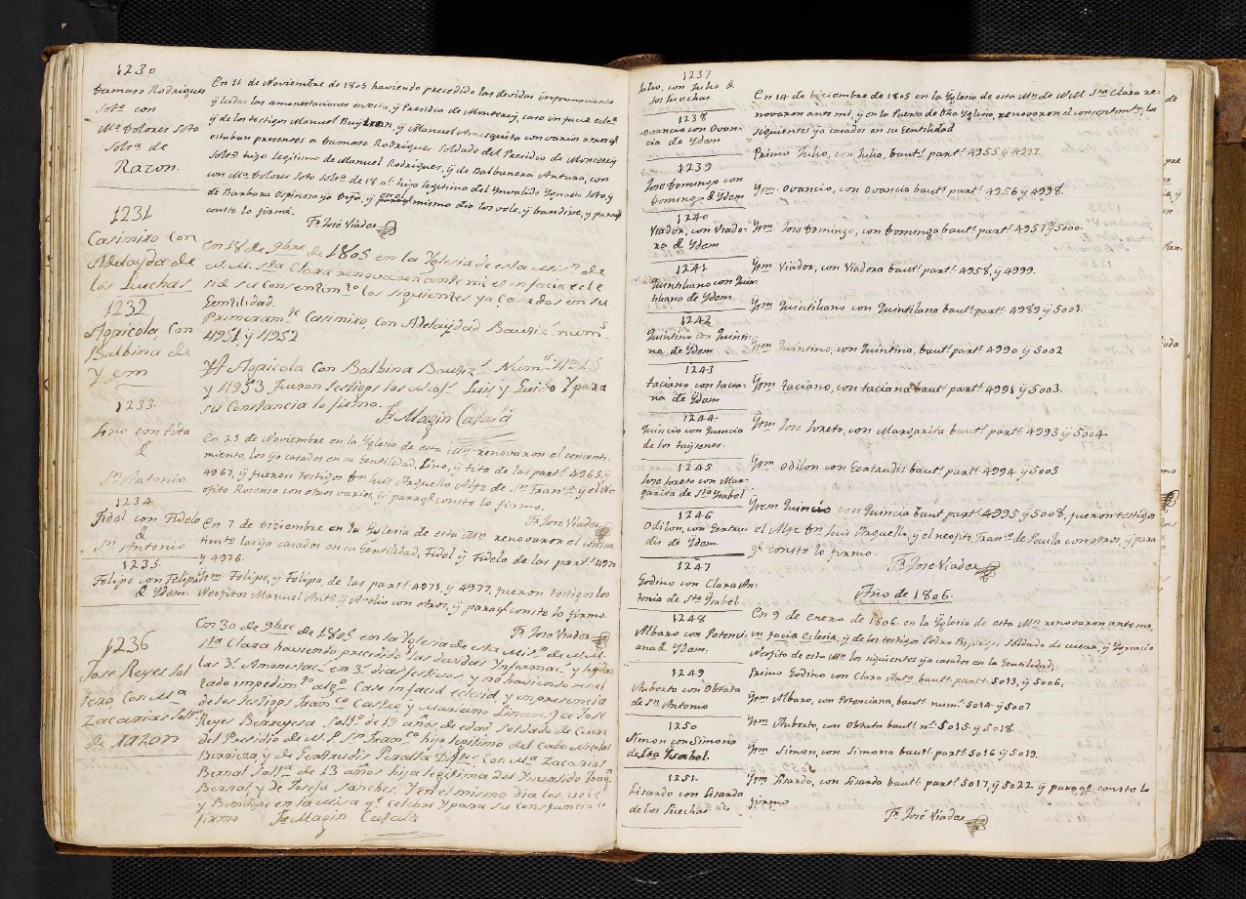 1230
Damaso Rodriguez
Solt.o con
M.a Dolores Soto
Solt.a de
Razon.
En 11 de Noviembre de 1805 haviendo precedido las devidas informaciones
ÿ leidas las amonestaciones en esta, ÿ Presidio de Monterey, case in facie ecle.a
ÿ de los testigos Manuel ÿ Manuel con varios otros q.e
estaban presentes a Damaso Rodriguez soldado del Presidio de Monterey
Solt.o hijo legitimo de Manuel Rodriguez, ÿ de Balbanera con
con M.a Dolores Soto solt.a de 18 a.s hija legitima del Ynvalido Ygnacio Soto, ÿ
de Barbara Espinosa ÿ mismo dia los vele, ÿ bendixe, ÿ paraq.e
conste lo firmé.
Fr. José Viader
1231
Casimiro, con
Adelayda de
los Luechas
En 18 de 9bre de 1805 en la Yglesia de esta Mis.n de
N.M. S.ta Clara renovaron ante mi in facie ecle
siæ su Consentim.to los siguientes ya Casados en su
Gentilidad.
Primeram.te Casimiro con Adelaydad Bautiz.s num.s
4951 ÿ 4952
1232
Agricola, con
Balbina de
Y con
Yt Agricola con Balbina Bautiz.s Num.s
y 4953 Fueron testigos los Luis, ÿ Guido Y para
su Constancia lo firmo.
Fr. Magin Catalá
1233.
Lino con tita
d
S.n Antonio
En 23 de Noviembre en la Yglesia de esta Mis.n renovaron el consenti
miento, los ya casados en su Gentilidad, Lino, ÿ tita de las part.s 4965 ÿ
4967, ÿ fueron testigos D.n Luis Arguello Alfz de S.n Fran.co, ÿ el Ne
ofito Rosenso con otros varios, ÿ paraq.e conste lo firmo.
Fr. José Viader
1234.
Fidel con Fidela
d
S.n Antonio
En 7 de Diziembre en la Yglesia de esta Mis.n renovaron el consen
timto los ya casados en su Gentilidad, Fidel ÿ Fidela de las part.s 4970
y 4976.
1235.
Felipe con Felipa
d Ydem.
Ytm. Felipe, ÿ Felipa, de las part.s 4971, ÿ 4977, fueron testigos los
Neofitos Manuel Ant.o ÿ con otros, ÿ paraq.e conste lo firmo.
Fr. José Viader
1236
Jose Reyes Sol
tero, Con M.a
Zacarias Solt.a
de razon
Con 30 de 9bre de 1805 en la Yglesia de esta Mis.n de N.M.
S.ta Clara haviendo precedido las devidas Ynformac.s y leidas
las 3.s Amonestac.s en 3.s dias festivos y no haviendo resul
tado impedim.to alg.o Case in facie eclesiæ y en presencia
de los testigos Fran.co Castro y Mariano a Jose
Reyes Berreyesa Solt.o de 19 años de edad Soldado de Cuera
del Presidio de N.P. S.n Fran.co hijo legitimo del Cabo Nicolas
Berrieza y de Gertrudis Peralta Con M.a Zacarias
Bernal Solt.a de 13 años hija legitima del Ynvalido
Bernal y de Josefa Sanches. Y en el mismo dia los vele
y Bendije en la Misa q.e Celebre Y para su Constancia lo
firmo Fr. Magin Catala
1237
Julio, con Julio d
los Luechas
En 14 de Diziembre de 1805 en la Yglesia de esta M.n de N.M. S.ta Clara re-
novaron ante mi, ÿ en la Puerta de Dña Yglesia, renovaron el consentim.to los
siguientes ÿa casados en su Gentilidad
Primo Julio, con Julia, baut.s part.s 4955 ÿ 4997.
1238
Ovancio con Ovan-
cia de Ydem
Ytm. Ovancio, con Ovancia baut.s part.s 4956 ÿ 4998.
1239
Jose Domingo con
Dominga d Ydem
Ytm Jose Domingo, con Dominga baut.s part.s 4957 ÿ 5000.
1240
Viador, con Viado-
ra d Ydem
Ytm Viador, con Viadora baut.s part.s 4958, ÿ 4999.
1241
Quintiliano con Quin-
tiliana de Ydem.
Ytm Quintiliano, con Quintiliana baut.s part.s 4989 ÿ 5001.
1242
Quintino con Quinti-
na, de Ydem
Ytm Quintino, con Quintina, baut.s part.s 4990 ÿ 5002
1243
Taciano con tacia-
na de Ydem
Ytm Taciano, con taciana baut.s part.s 4991 ÿ 5003.
1244
Quincio con Quincia
de los Tayssenes.
Ytm Jose Loreto, con Margarita baut.s part.s 4993 ÿ 5004
1245
Jose Loreto con Mar-
garita de S.ta Ysabel
Ytm Odilon con Gertrudis baut.s part.s 4994 ÿ 5005
1246
Odilon, con Gertru-
dis de Ydem.
Ytem Quincio con Quincia baut.s part.s 4995 ÿ 5008, fueron testigos
el Alfz D.n Luis Arguello, ÿ el neofito Fran.co de Paula con otros, ÿ para
q.e conste lo firmo.
Fr. José Viader
1247
Godino con Clara An-
tonia de S.ta Ysabel.
Año de 1806.
En 9 de Enero de 1806. en la Yglesia de esta M.n renovaron ante mi,
in facie Eclesiæ, ÿ de los testigos Pedro soldado de cuera, ÿ Ygnacio
Neofito de esta M.n los siguientes ÿa casados en la Gentilidad,
Primo Godino con Clara Ant.a baut.s part.s 5013, ÿ 5006.
1248
Albaro con Potenci-
ana d Ydem.
Ytem Albaro, con Potenciana, baut.s num.s 5014 ÿ 5007
1249
Auberto con Obtata
de S.n Antonio
Ytm Auberto, con Obtata baut.s n.s 5015 ÿ 5018
1250
Simon con Simona
de S.ta Ysabel.
Ytm Simon, con Simona baut.s part.s 5016 ÿ 5019.
1251.
Lisardo con Lisarda
de los Luechas
Ytm Lisardo, con Lisarda baut.s part.s 5017, ÿ 5022 ÿ paraq.e conste lo
firmo
Fr. José Viader